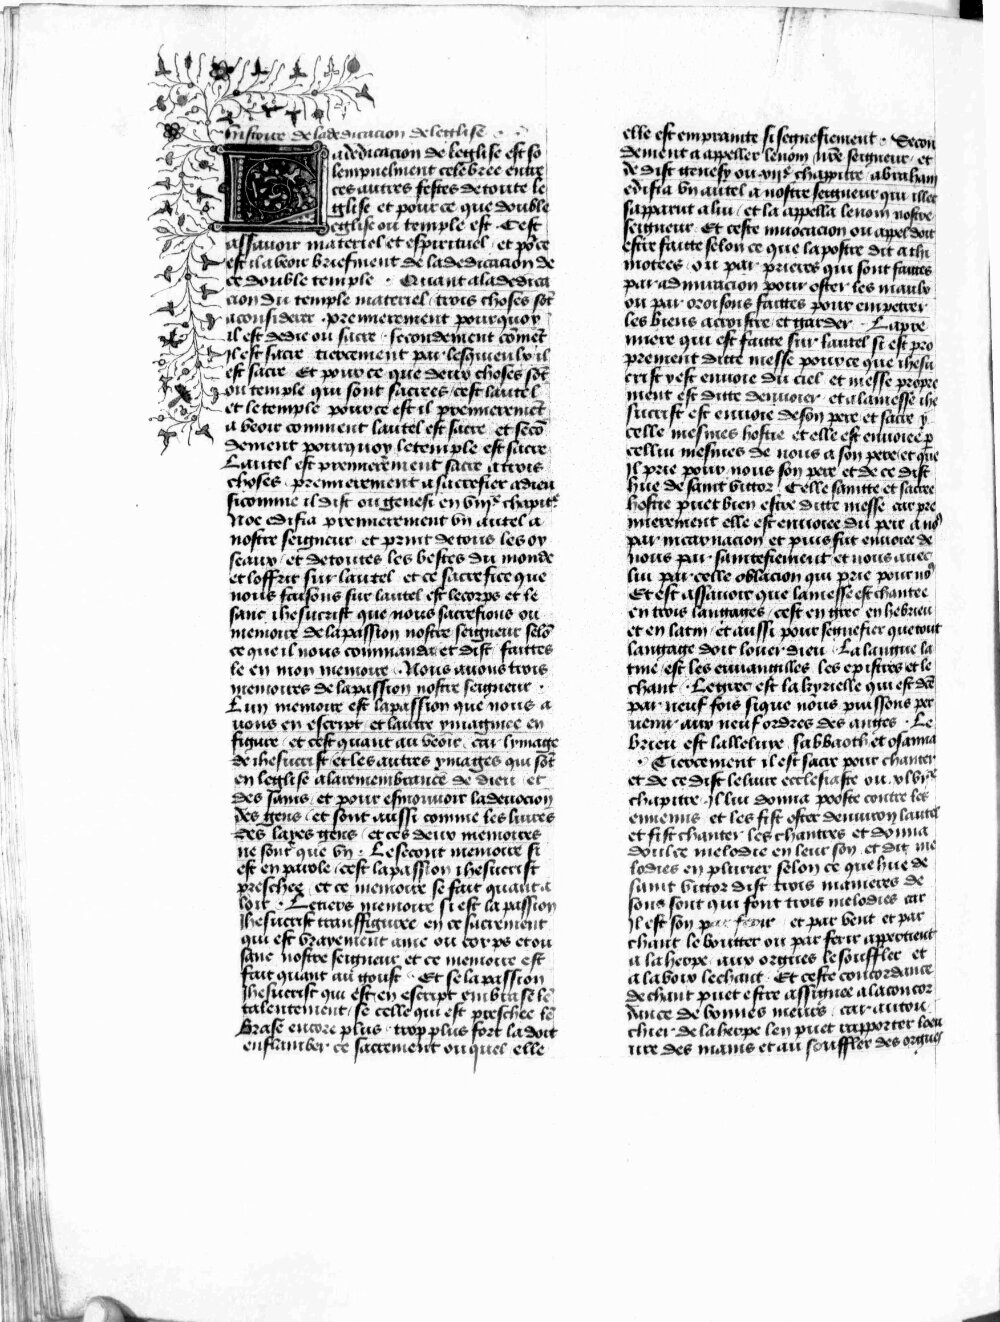 histoire de la dedicacion de leglise
La dedicacion de leglise est so
lempnelment celebree entre
ces autres festes de toute le
glise et pour ce que double
eglise ou temple est. Cest
assauoir materiel et espirituel. et pō ce
est il a veoir briefment de la dedicacion de
ce double temple. Quant a la dedica
cion du temple materiel trois choses sōt
a considerer. premierement pourquoy
il est dedie ou sacre. secondement cōmēt
il est sacre. tiercement par lesquieulx il
est sacre. Et pour ce que deux choses sōt
ou temple qui sont sacrees cest lautel
et le temple pour ce est il premieremēt
a veoir comment lautel est sacre et secō
dement pourquoy le temple est sacre
Lautel est premierement sacre a trois
choses. premierement a sacrefier a dieu
sicomme il dist ou genesi en viijͤ chapitͬ
Noe edifia premierement vn autel a
nostre seigneur et print de tous les oy
seaux et de toutes les bestes du monde
et loffrit sur lautel. et ce sacrefice que
nous faisons sur lautel est le corps et le
sanc ihesucrist que nous sacrefions ou
memoire de la passion nostre seigneur selō
ce que il nous commanda et dist faittes
le en mon memoire. Nous auons trois
memoires de la passion nostre seigneur.
Lun memoire est la passion que nous a
uons en escript et lautre ymaginee en
figure et cest quant au veoir. car lymage
de ihesucrist et les autres ymages qui sōt
en leglise a la remembrance de dieu et
des sains et pour esmouuoir la deuocion
des gens et sont aussi comme les liures
des layes gens et ces deux memoires
ne sont que vn. Le second memoire si
est en parole cest la passion ihesucrist
preschee et ce memoire se fait quant a
loir. Le tiers memoire si est la passion
ihesucrist transfiguree en ce sacrement
qui est vrayement ame ou corps et ou
sanc nostre seigneur et ce memoire est
fait quant au goust. Et se la passion
ihesucrist qui est en escript embrase le
talentement se celle qui est preschee le
brase encore plus. trop plus fort la doit
enflamber ce sacrement ou quel elle
elle est emprainte si segnefiement. Secon
dement a appeller le nom nr̄e seigneur et
de dist genesy ou xijͤ chapitre abraham
edifia vn autel a nostre seigneur qui illec
sapparut a lui et la appella le nom nostre
seigneur. Et ceste inuocacion ou appel doit
estre faitte selon ce que lapostre dit a thi
motees. ou par prieres qui sont faittes
par adiuracion pour oster les maulx
ou par oroisons faittes pour empetrer
les biens acroistre et garder. La pre
miere qui est faitte sur lautel si est pro
prement ditte messe pour ce que ihesu
crist y est enuoie du ciel et messe propre
ment est ditte denuoier et a la messe ihe
sucrist est enuoie de son pere et sacre y
celle mesmes hostie et elle est enuoiee p̄
cellui mesmes de nous a son pere et que
il prie pour nous son pere et de ce dist
hue de saint victor. Celle saintte et sacree
hostie puet bien estre ditte messe car pre
mierement elle est enuoiee du pere a noꝰ
par incarnacion et puis fut enuoiee de
nous par saintefiement et nous auec
lui par celle oblacion qui prie pour noꝰ
Et est assauoir que la messe est chantee
en trois langages cest en grec en hebrieu
et en latin et aussi pour segnefier que tout
langage doit louer dieu. La langue la
tine est les euuangilles les epistres et le
chant. Le grec est la kyrielle qui est dite
par neuf fois si que nous puissons per
uenir aux neuf ordres des anges. Le
brieu est lalleluye sabbaoth et osanna
Tiercement il est sacre pour chanter
et de ce dist le liure ecclesiaste ou xlviiͤ
chapitre. Il lui donna pooste contre les
ennemis et les fist oster denuiron lautel
et fist chanter les chantres et donna
doulce melodie en leur son. et dit me
lodies en plurier selon ce que hue de
saint victor dist trois manieres de
sons sont qui font trois melodies car
il est son par ferir et par vent et par
chant le boutter ou par ferir appertient
a la herpe. aux orgues le souffler et
a la voix le chant. Et ceste concordance
de chant puet estre assignee a la concor
dance de bonnes meurs. car au tou
chier de la herpe len puet rapporter loeu
ure des mains et au souffler des orgues